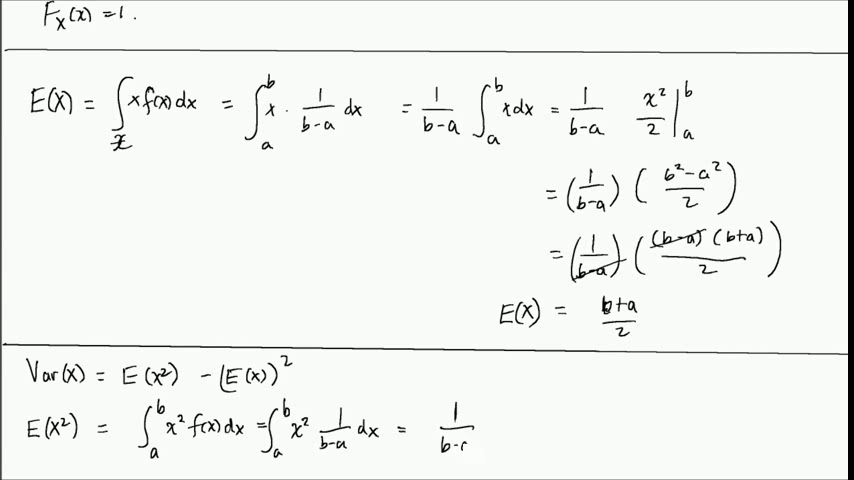 F_X(x) = 1.
E(X) = ∫_𝒳 x f(x) dx = ∫_a^b x · 1/(b-a) dx = 1/(b-a) ∫_a^b x dx = 1/(b-a) x²/2 |_a^b
= (1/(b-a)) ((b²-a²)/2)
= (1/(b-a)) ((b-a)(b+a)/2)
E(X) = (b+a)/2
Var(X) = E(X²) - (E(X))²
E(X²) = ∫_a^b x² f(x) dx = ∫_a^b x² 1/(b-a) dx = 1/(b-